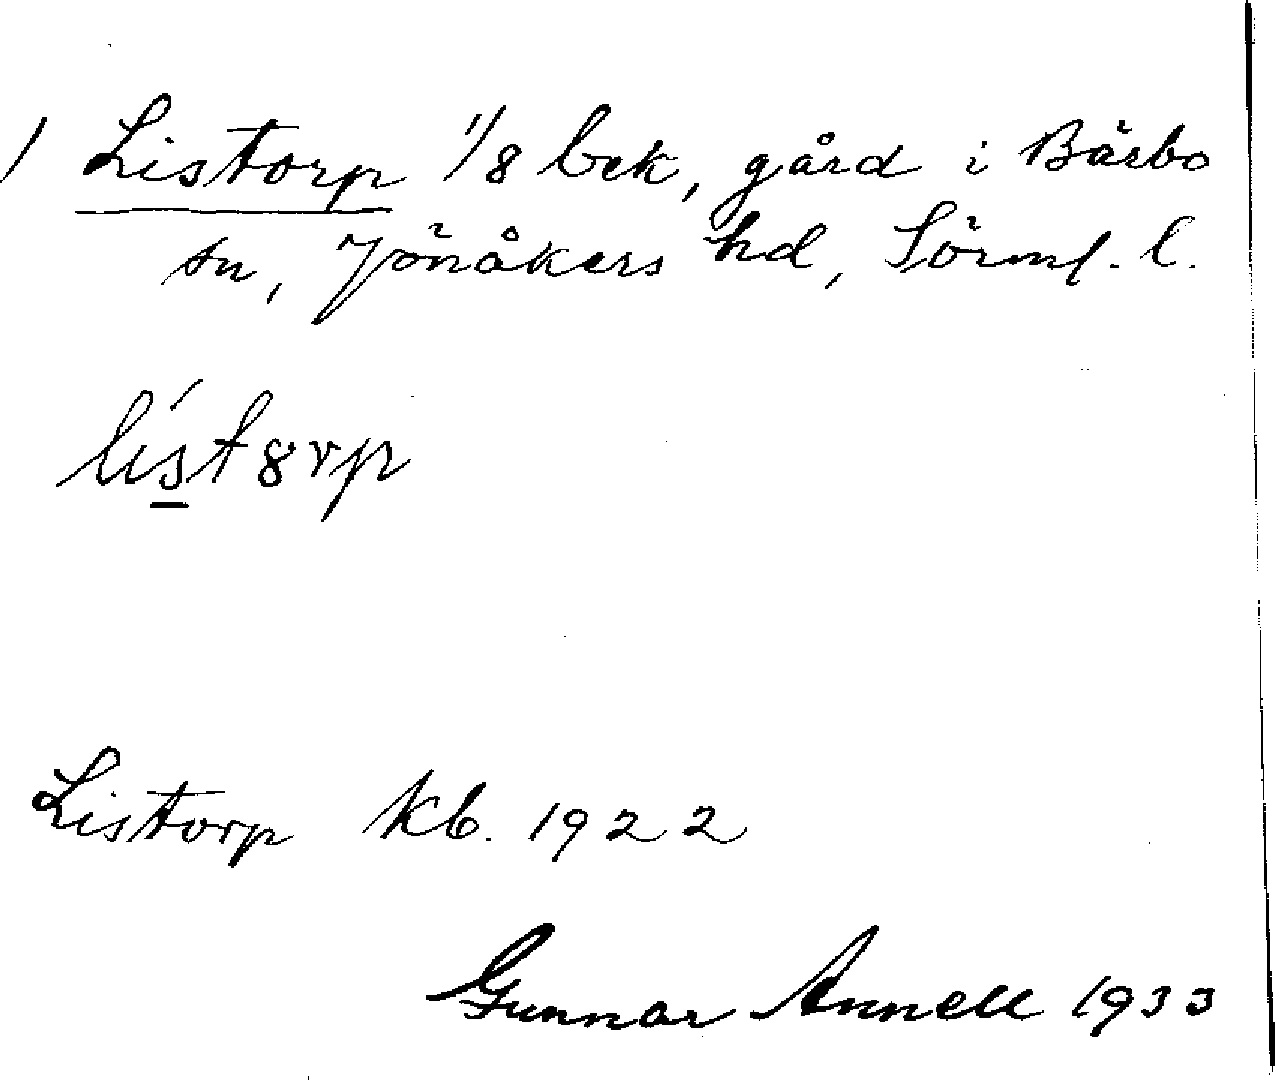 / Listorp 1/8 bek, gård i Bärbo
sn, Jönåkers hd, Sörml. l.
lís̲t8rp
Listorp Kb. 1922
Gunnar Annell 1933